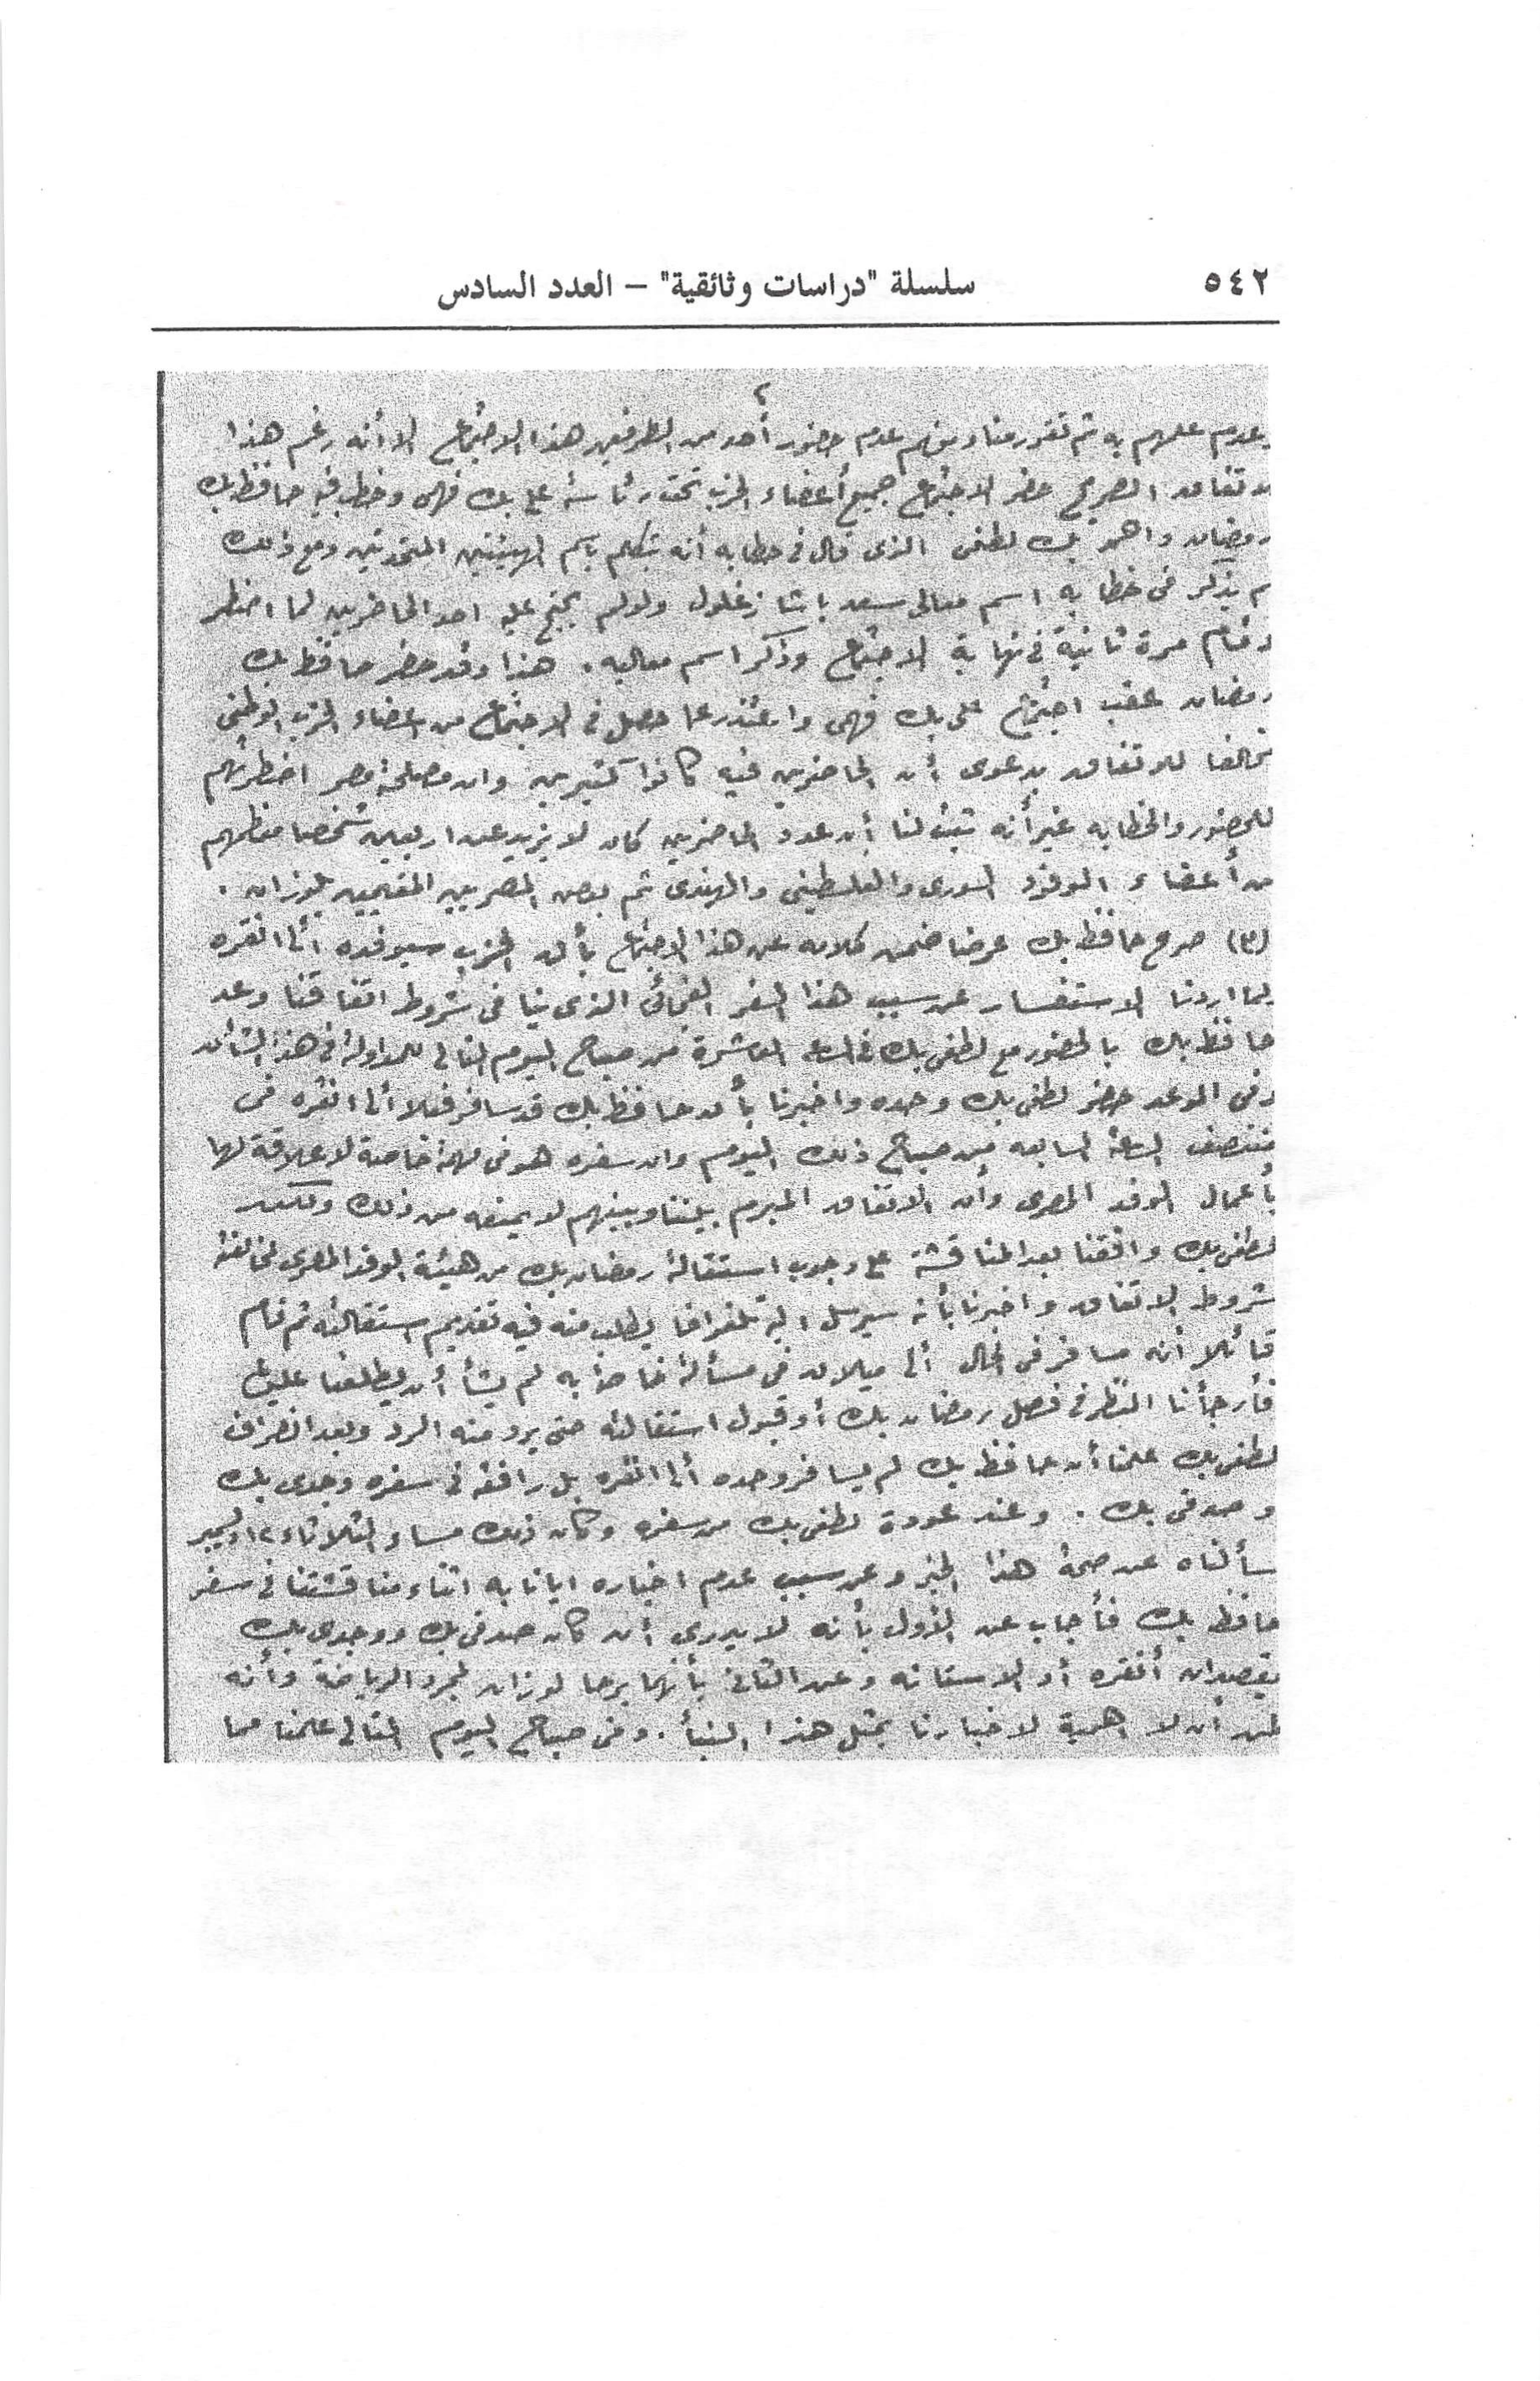 ٥٤٢
سلسلة "دراسات وثائقية" – العدد السادس
٢
وعدم علمهم به ثم تقرر منا ومنهم عدم حضور أحد من الطرفين هذا الاجتماع الا أنه رغم هذا
الاتفاق الصريح حضر الاجتماع جميع أعضاء الحزب تحت رئاسة على بك فهمى وخطب فيه حافظ بك
رمضان واحمد بك لطفى الذى قال فى خطابه أنه يتكلم باسم الهيئتين المتحدتين ومع ذلك
لم يذكر فى خطابه اسم معالى سعد باشا زغلول ولو لم يحتج عليه احد الحاضرين لما اضطر
وقام مرة ثانية فى نهاية الاجتماع وذكر اسم معاليه . هذا وقد حضر حافظ بك
رمضان عقب اجتماع على بك فهمى واعتذر عما حصل فى الاجتماع من اعضاء الحزب الوطنى
مخالفا للاتفاق بدعوى أن الحاضرين فيه كانوا كثيرين وان مصلحة مصر اضطرتهم
للحضور والخطابه غير أنه ثبت لنا أن عدد الحاضرين كان لا يزيد عن اربعين شخصا معظمهم
من أعضاء الوفود السورى والفلسطينى والهندى ثم بعض المصريين المقيمين بلوزان .
(٣) صرح حافظ بك عرضا ضمن كلامه عن هذا الاجتماع بأن الحزب سيوفده الى انقره
ولما اردنا الاستفسار عن سبب هذا السفر الفجائى الذى ينافى شروط اتفاقنا وعد
حافظ بك بالحضور مع لطفى بك فى الساعه العاشرة من صباح اليوم التالى للمداولة فى هذا الشأن
وفى الموعد حضر لطفى بك وحده واخبرنا بأن حافظ بك قد سافر فعلا الى انقره فى
منتصف الساعة السابعه من صباح ذلك اليوم وان سفره هو فى مهمة خاصة لا علاقة لها
بأعمال الوفد المصرى وأن الاتفاق المبرم بيننا وبينهم لا يمنعه من ذلك ولكن
لطفى بك وافقنا بعد المناقشة على وجوب استقالة رمضان بك من هيئة الوفد المصرى لمخالفته
شروط الاتفاق واخبرنا بأنه سيرسل اليه تلغرافا يطلب منه فيه تقديم استقالته ثم قام
قائلا أنه مسافر فى الحال الى ميلان فى مسألة خاصة به لم يشأ أن يطلعنا عليها
فأرجأنا النظر فى فصل رمضان بك أو قبول استقالته حتى يرد منه الرد وبعد انصراف
لطفى بك علمنا أن حافظ بك لم يسافر وحده الى انقره بل رافقه فى سفره وجدى بك
وصدقى بك . وعند عودة لطفى بك من سفره وكان ذلك مساء الثلاثاء ١٢ ديسمبر
سألناه عن صحة هذا الخبر وعن سبب عدم اخباره ايانا به اثناء مناقشتنا فى سفر
حافظ بك فأجاب عن الأول بأنه لا يدرى أن كان صدقى بك ووجدى بك
يقصدان أنقره أو الاستانه وعن الثانى بأنهما برحا لوزان لمجرد الرياضة وأنه
ظن أن لا اهمية لاخبارنا بمثل هذا النبأ . وفى صباح اليوم التالى علمنا مما